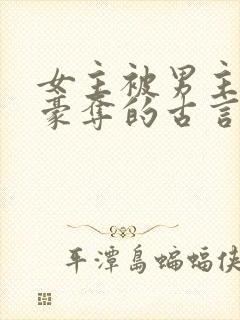 女主被男主
豪夺的古言
平潭岛蝙蝠侠